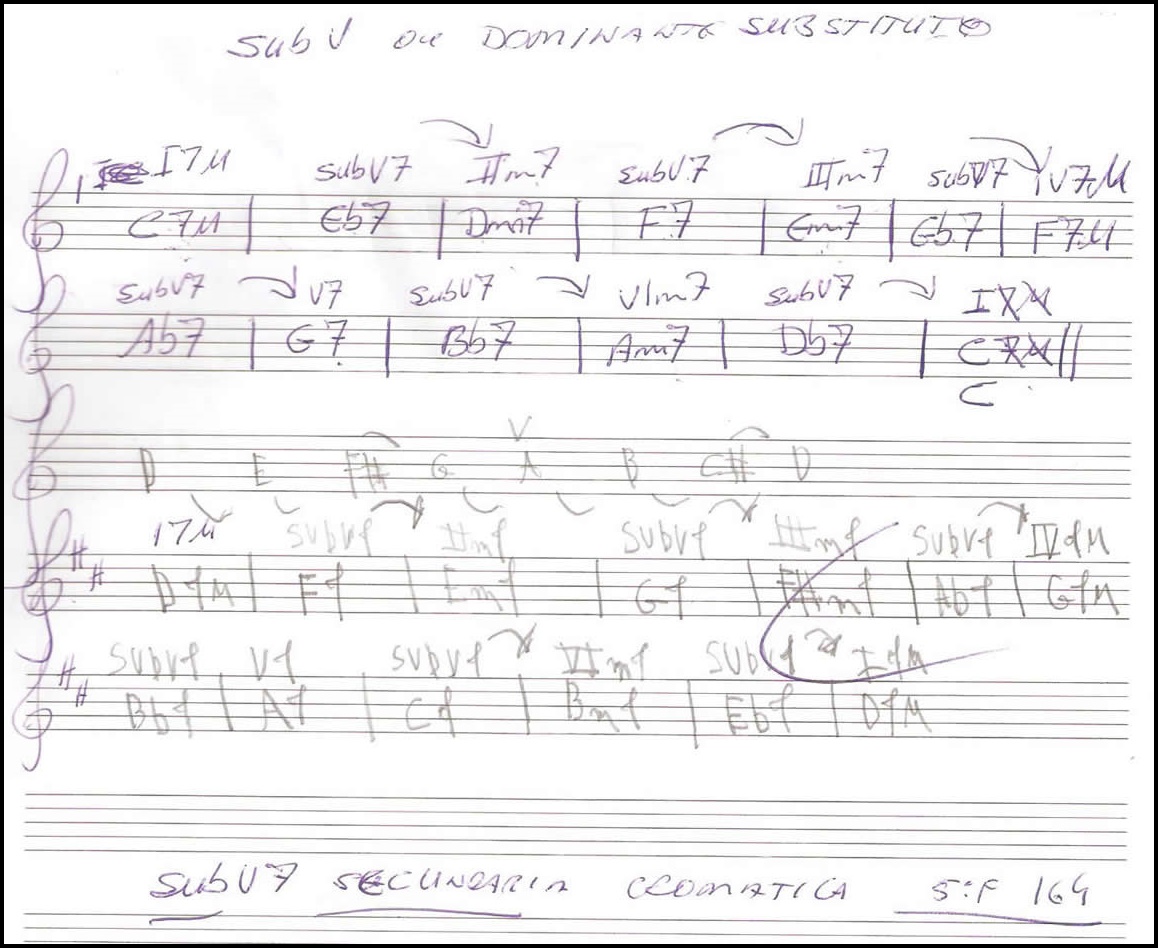 SubV ou DOMINANTE SUBSTITUTO
I7M subV7 IIm7 subV7 IIIm7 subV7 IV7M
C7M Eb7 Dm7 F7 Em7 Gb7 F7M
subV7 V7 subV7 VIm7 subV7 I
Ab7 G7 Bb7 Am7 Db7 C
C
V
D E F# G A B C# D
I7M SubV7 IIm7 SubV7 IIIm7 SubV7 IV7M
D7M F7 Em7 G7 F#m7 Ab7 G7M
SubV7 V7 SubV7 VIm7 SubV7 I7M
Bb7 A7 C7 Bm7 Eb7 D7M
SubV7 SECUNDARIA CROMATICA 164